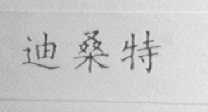 迪桑特